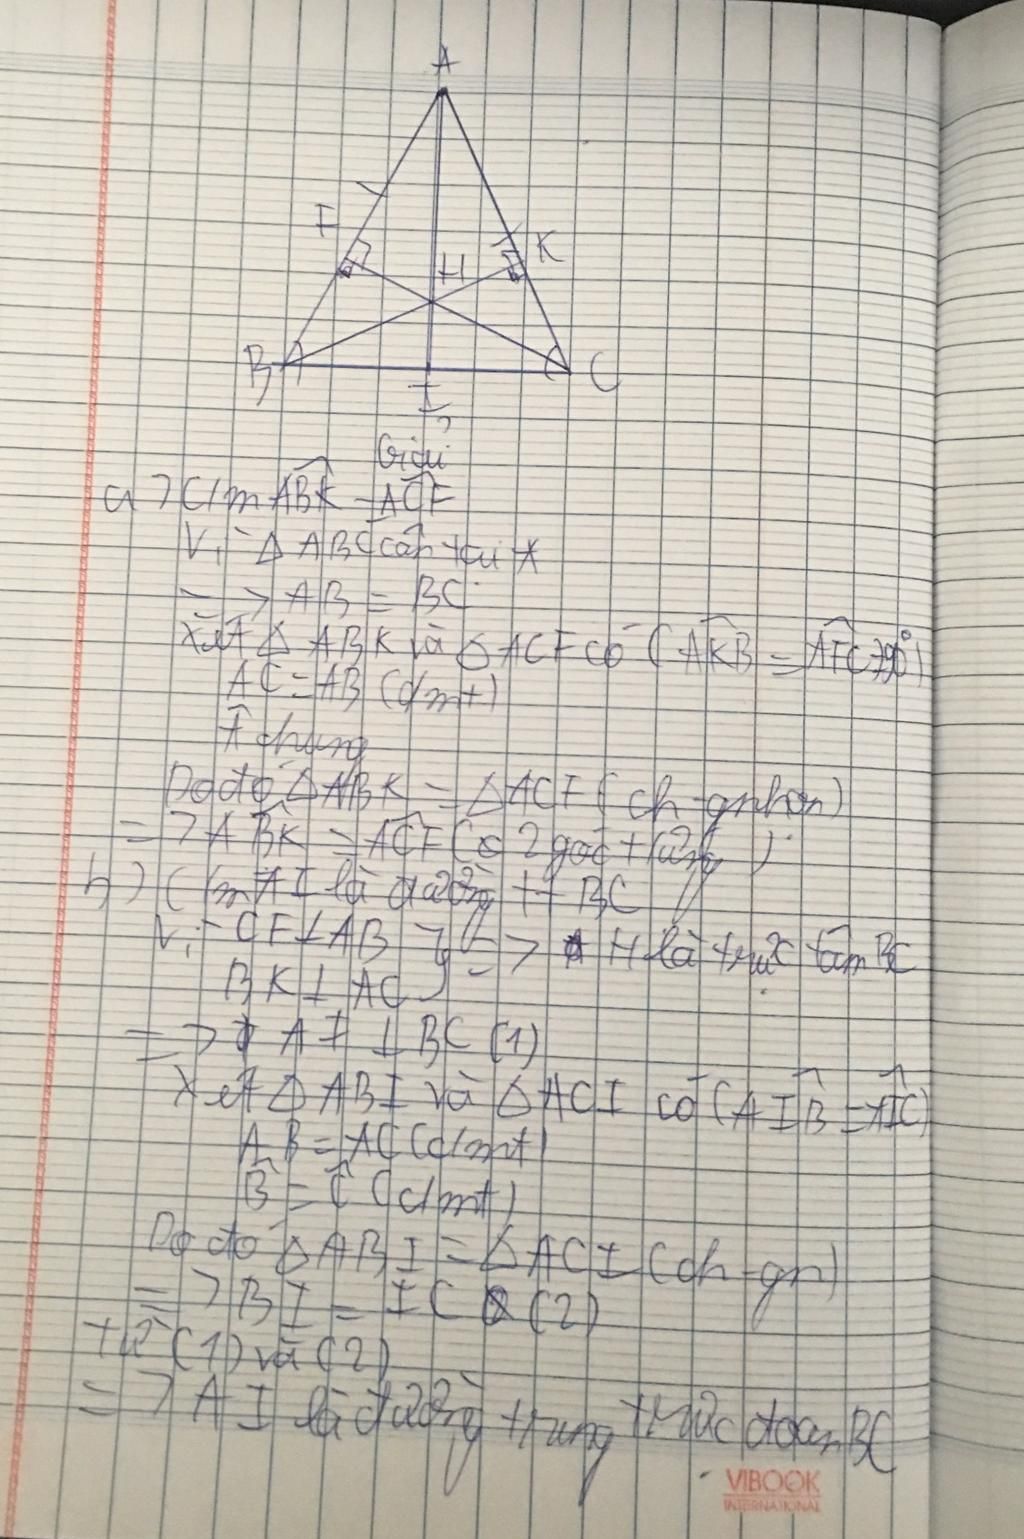 A
F
K
H
B
C
I
Giải
a > C/m ABK = ACF
Vì Δ ABC cân tại A
=> AB = BC
Xét Δ ABK và Δ ACF có ( AKB = AFC = 90°)
AC = AB (c/mt)
Â chung
Do đó Δ ABK = Δ ACF ( ch-gnhọn)
=> ABK = ACF ( 2 góc tứng )
b > C/m AI là đường tt BC
Vì CF ⊥ AB } => H là trực tâm BC
BK ⊥ AC
=> AI ⊥ BC (1)
Xét Δ ABI và Δ ACI có ( AIB = AIC)
AB = AC (c/mt)
B̂ = Ĉ (c/mt)
Do đó Δ ABI = Δ ACI (ch-gn)
=> BI = IC (2)
từ (1) và (2)
=> AI là đường trung trực đoan BC
VIBOOK
INTERNATIONAL